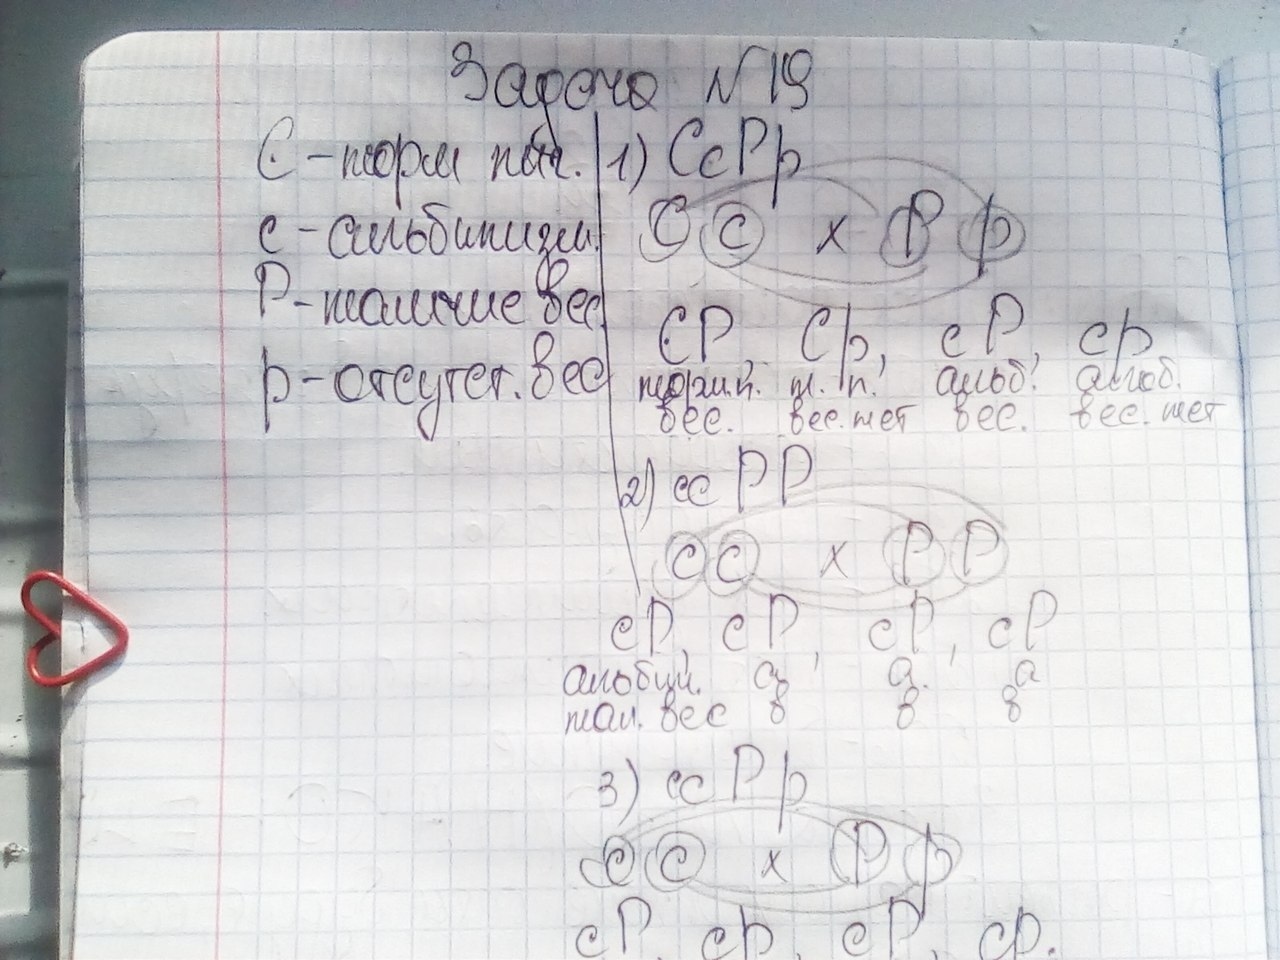 Задача №19
С – норм пиг.
с – альбинизм.
Р – наличие вес
р – отсутст. вес
1) СсРр
С с х Р р
СР, Ср, сР, ср
норм.п. н. п. альб. альб.
вес. вес. нет вес. вес. нет
2) сс РР
с с х Р Р
сР, сР, сР, сР
альбин. а а. а
нал. вес в в в
3) сс Рр
с с х Р р
сР, ср, сР, ср.